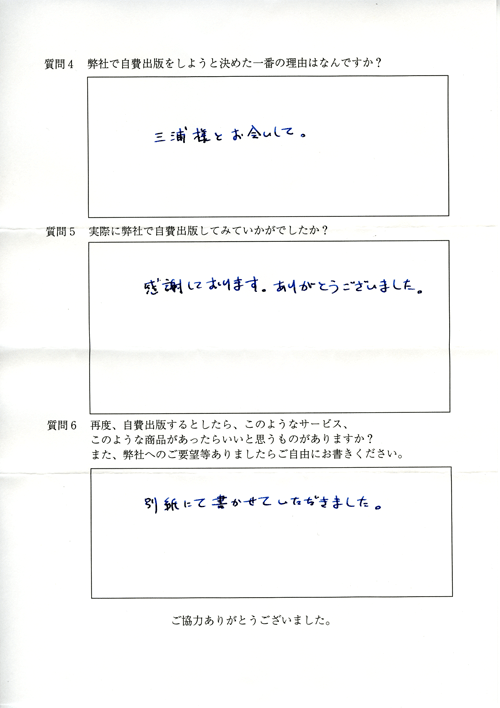 質問4 弊社で自費出版をしようと決めた一番の理由はなんですか？
三浦様とお会いして。
質問5 実際に弊社で自費出版してみていかがでしたか？
感謝しております。ありがとうございました。
質問6 再度、自費出版するとしたら、このようなサービス、
このような商品があったらいいと思うものがありますか？
また、弊社へのご要望等ありましたらご自由にお書きください。
別紙にて書かせていただきました。
ご協力ありがとうございました。